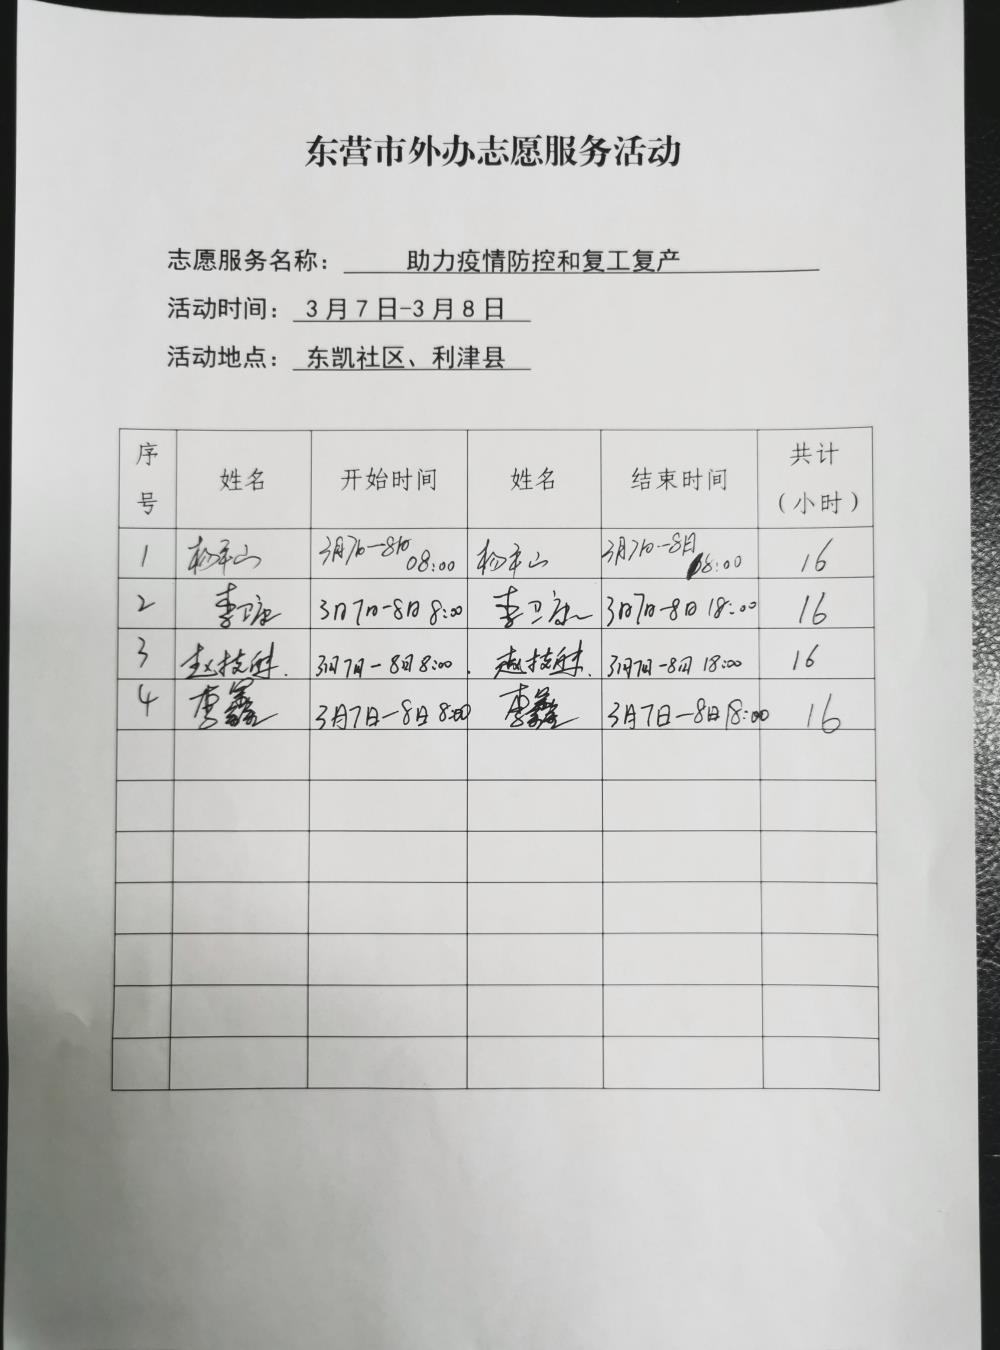 东营市外办志愿服务活动
志愿服务名称：助力疫情防控和复工复产
活动时间：3月7日-3月8日
活动地点：东凯社区、利津县
序号 姓名 开始时间 姓名 结束时间 共计（小时）
1 杨 山 3月7日—8日 08:00 杨 山 3月7日—8日 18:00 16
2 李卫 3月7日—8日 8:00 李卫 3月7日—8日 18:00 16
3 赵 3月7日—8日 8:00 赵 3月7日—8日 18:00 16
4 李鑫 3月7日—8日 8:00 李鑫 3月7日—8日 18:00 16